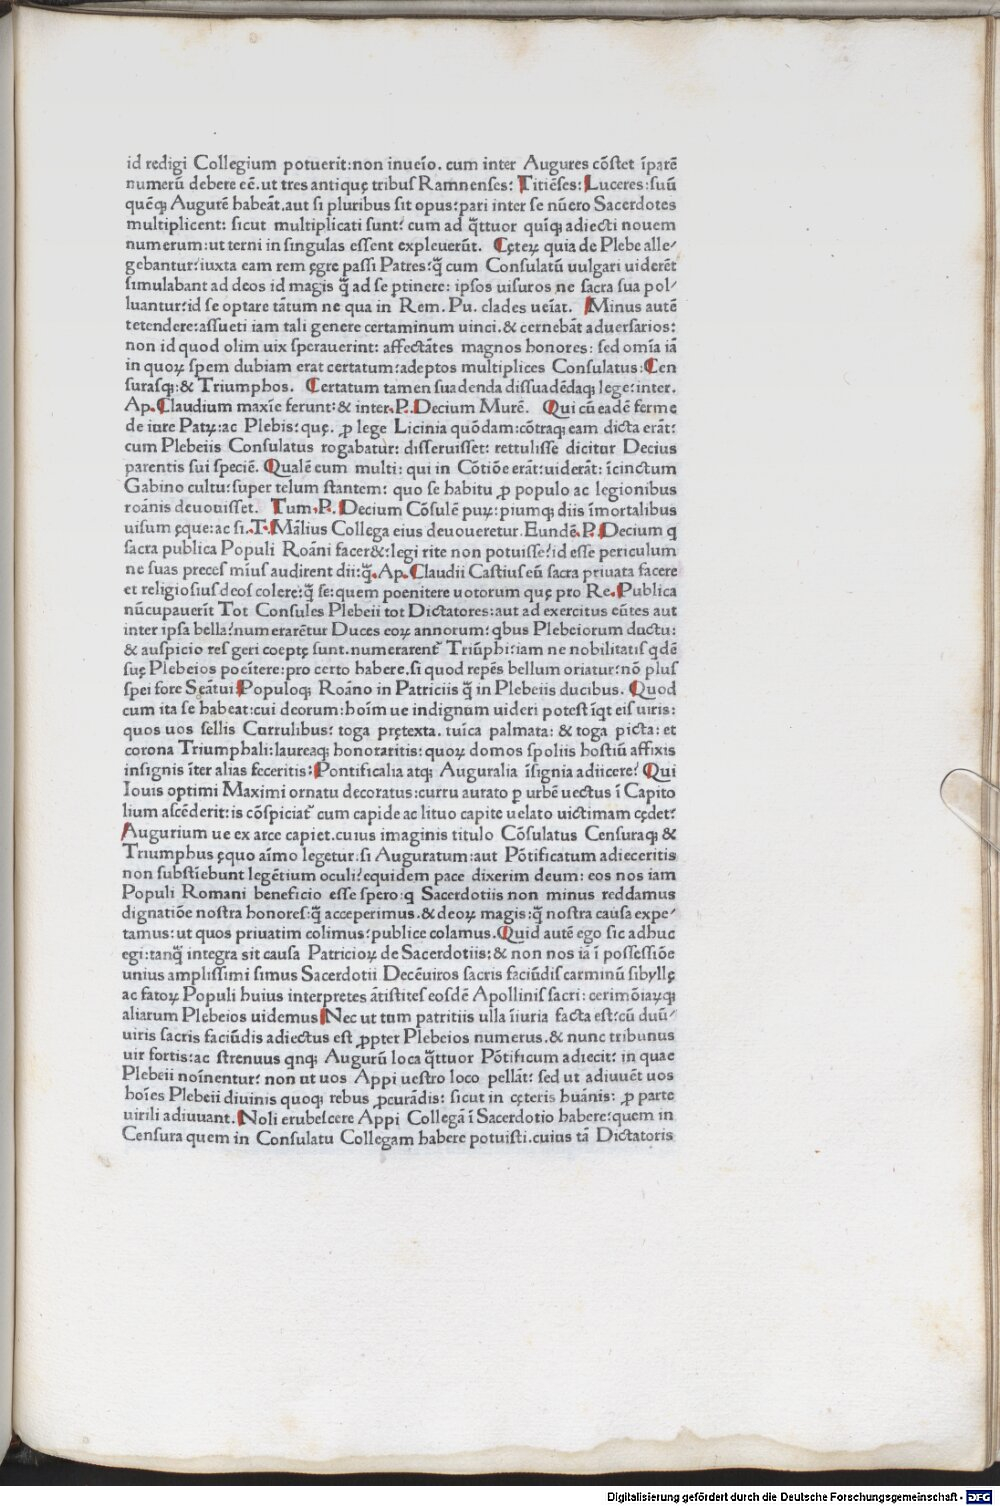 id redigi Collegium potuerit:non inueīo. cum inter Augures cōstet īparē
numerū debere eē.ut tres antiquę tribus Ramnenses: Titiēses: Luceres:suū
quēq; Augurē habeāt.aut si pluribus sit opus:pari inter se nūero Sacerdotes
multiplicent: sicut multiplicati sunt: cum ad q̄ttuor quīq; adiecti nouem
numerum:ut terni in singulas essent expleuerūt. Cęteꝝ quia de Plebe alle-
gebantur:iuxta eam rem ęgre passi Patres:q̄ cum Consulatū uulgari uiderēt
simulabant ad deos id magis q̄ ad se ꝑtinere: ipsos uisuros ne sacra sua pol-
luantur:id se optare tātum ne qua in Rem. Pu. clades ueīat. Minus autē
tetendere:assueti iam tali genere certaminum uinci.& cernebāt aduersarios:
non id quod olim uix sperauerint: affectātes magnos honores: sed omīa iā
in quoꝝ spem dubiam erat certatum:adeptos multiplices Consulatus:Cen
surasq;:& Triumphos. Certatum tamen suadenda dissuadēdaq; lege:inter.
Ap. Claudium maxīe ferunt:& inter.P. Decium Murē. Qui cū eadē ferme
de iure Patꝝ:ac Plebis:quę. ꝓ lege Licinia quōdam:cōtraq; eam dicta erāt:
cum Plebeiis Consulatus rogabatur: disseruisset: rettulisse dicitur Decius
parentis sui speciē. Qualē eum multi: qui in Cōtiōe erāt:uiderāt: īcinctum
Gabino cultu:super telum stantem: quo se habitu ꝓ populo ac legionibus
roānis deuouisset. Tum.P. Decium Cōsulē puꝝ:piumq; diis īmortalibus
uisum ęque:ac si.T. Mālius Collega eius deuoueretur. Eundē.P. Decium q
sacra publica Populi Roāni facer&:legi rite non potuisse:id esse periculum
ne suas preces mīus audirent dii:q̄.Ap. Claudii Castius eū sacra priuata facere
et religiosius deos colere:q̄ se:quem poenitere uotorum quę pro Re.Publica
nūcupauerīt Tot Consules Plebeii tot Dictatores:aut ad exercitus eūtes aut
inter ipsa bella:numerarētur Duces eoꝝ annorum:qbus Plebeiorum ductu:
& auspicio res geri coeptę sunt.numerarent̄ Triūphi:iam ne nobilitatis qdē
suę Plebeios poeītere:pro certo habere.si quod repēs bellum oriatur:nō plus
spei fore Seātui Populoq; Roāno in Patriciis q̄ in Plebeiis ducibus. Quod
cum ita se habeat:cui deorum:hoīm ue indignum uideri potest īqt eis uiris:
quos uos sellis Currulibus: toga prętexta. tuīca palmata: & toga picta: et
corona Triumphali:laureaq; honoraritis: quoꝝ domos spoliis hostiū affixis
insignis īter alias feceritis: Pontificalia atq; Auguralia īsignia adiicere: Qui
Iouis optimi Maximi ornatu decoratus:curru aurato ꝑ urbē uectus ī Capito
lium ascēderit:is cōspiciat̄ cum capide ac lituo capite uelato uictimam cędet:
Augurium ue ex arce capiet.cuius imaginis titulo Cōsulatus Censuraq; &
Triumphus ęquo aīmo legetur:si Auguratum:aut Pōtificatum adieceritis
non substīebunt legētium oculi:equidem pace dixerim deum: eos nos iam
Populi Romani beneficio esse spero:q Sacerdotiis non minus reddamus
dignatiōe nostra honores:q̄ acceperimus.& deoꝝ magis:q̄ nostra causa expe-
tamus:ut quos priuatim colimus:publice colamus.Quid autē ego sic adhuc
egi:tanq̄ integra sit causa Patricioꝝ de Sacerdotiis:& non nos iā ī possessiōe
unius amplissimi simus Sacerdotii Decēuiros sacris faciūdis carminū sibyllę
ac fatoꝝ Populi huius interpretes ātistites eosdē Apollinis sacri: cerimōiaꝝq;
aliarum Plebeios uidemus Nec ut tum patritiis ulla īiuria facta est:cū duū-
uiris sacris faciūdis adiectus est ꝓpter Plebeios numerus.& nunc tribunus
uir fortis:ac strenuus qnq; Augurū loca q̄ttuor Pōtificum adiecit: in quae
Plebeii noīnentur: non ut uos Appi uestro loco pellāt: sed ut adiuuēt uos
hoīes Plebeii diuinis quoq; rebus ꝓcurādis: sicut in cęteris huānis: ꝓ parte
uirili adiuuant.Noli erubescere Appi Collegā ī Sacerdotio habere:quem in
Censura quem in Consulatu Collegam habere potuisti.cuius tā Dictatoris
Digitalisierung gefördert durch die Deutsche Forschungsgemeinschaft - DFG